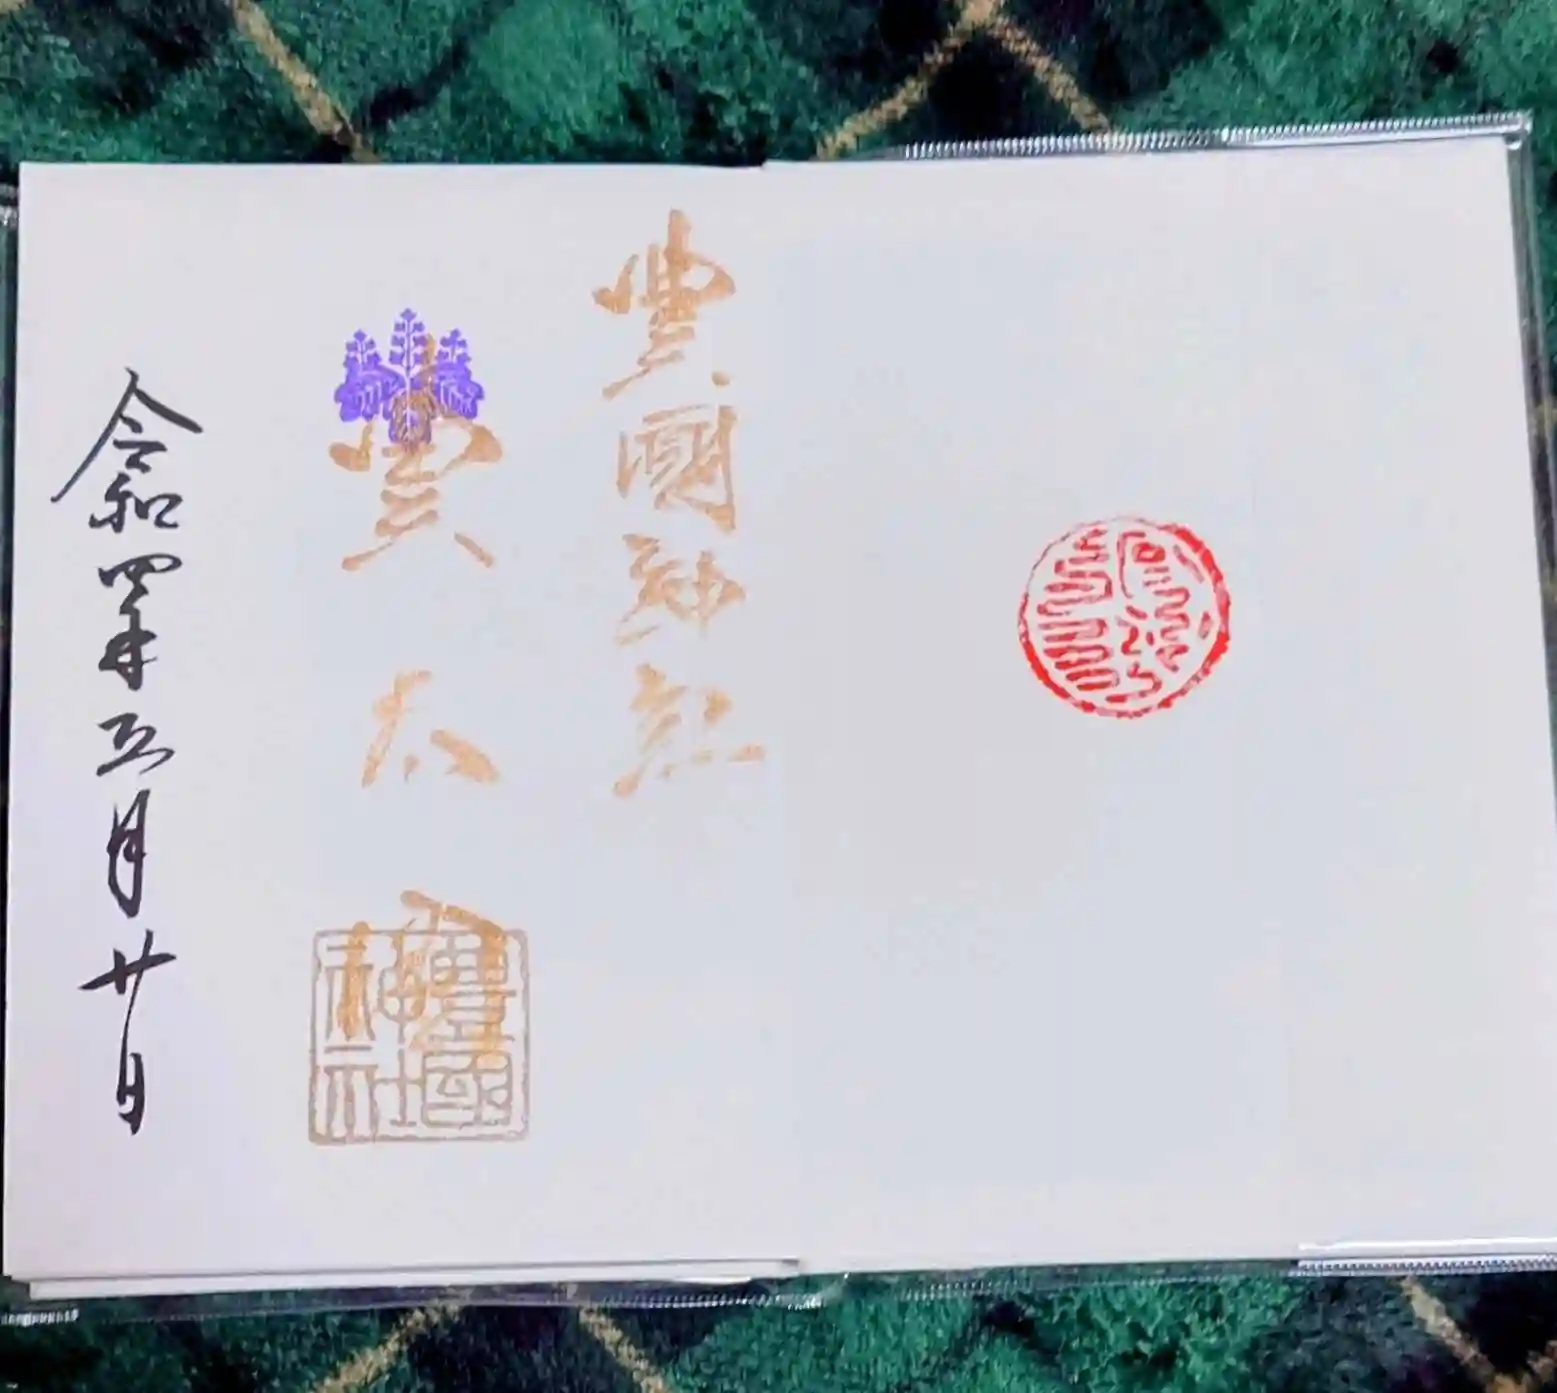 豊國神社
豊太閤
豊國
神社
令和四年五月廿日